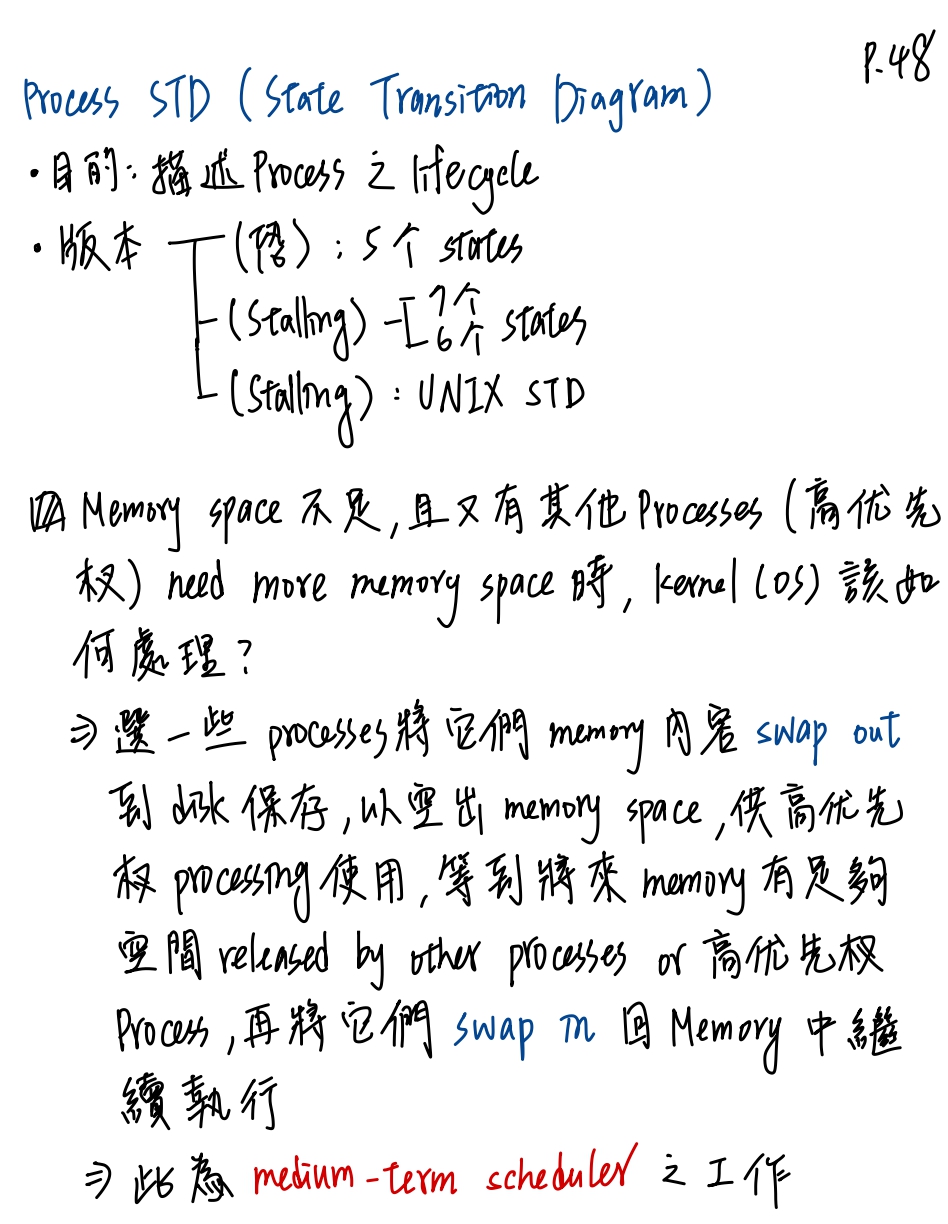 P.48
Process STD (State Transition Diagram)
・目的：描述 Process 之 lifecycle
・版本 (恐)：5个 states
(Stalling) 7个
6个 states
(Stalling)：UNIX STD
Memory space 不足,且又有其他 Processes (高优先
权) need more memory space 時, kernel (OS) 該如
何處理?
⇒ 選一些 processes 將它們 memory 內容 swap out
到 disk 保存,以空出 memory space,供高优先
权 processing 使用,等到將來 memory 有足夠
空間 released by other processes or 高优先权
Process,再將它們 swap in 回 Memory 中繼
續執行
⇒ 此為 medium-term scheduler 之工作